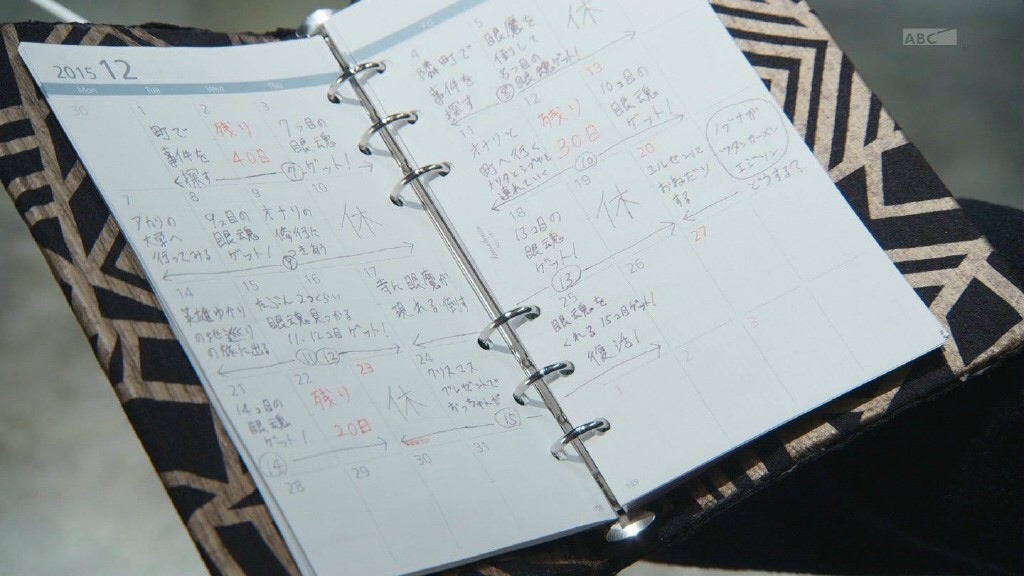 ABC
2015 12
Mon Tue Wed Thu
30
1
町で
事件を
探す
2
残り
40日
3
7つ目の
眼魂
ゲット!
⑦
4
隣町で
事件を
探す
5
眼魔を
倒して
8コ目の
眼魂ゲット!
⑧
休
7
アカリの
大学へ
行ってみる
8
9
9つ目の
眼魂
ゲット!
⑨
オナリの
修行に
つき合う
10
休
11
オナリと
町へ行く
12
残り
30日
13
10コ目の
眼魂
ゲット!
⑩
14
英雄ゆかり
の地巡り
の旅に出る
15
たぶん2つくらい
眼魂見つかる
11、12コ目ゲット!
⑪ ⑫
16
17
寺に眼魔が
現れる倒す
18
13コ目の
眼魂
ゲット!
⑬
19
休
20
おねだり
する
どうする?
21
14コ目の
眼魂
ゲット!
⑭
22
残り
20日
23
休
24
クリスマス
プレゼントで
おっちゃんが
⑮
25
眼魂を
くれる15コ目ゲット!
復活!
26
27
28
29
30
31
1
2
3